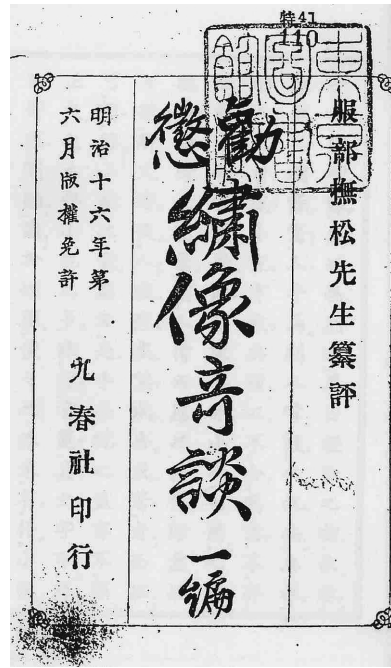 特41
110
東京
圖書
館藏
服部撫松先生纂評
勸
懲
繡像奇談 一編
明治十六年第
六月版權免許
九春社印行